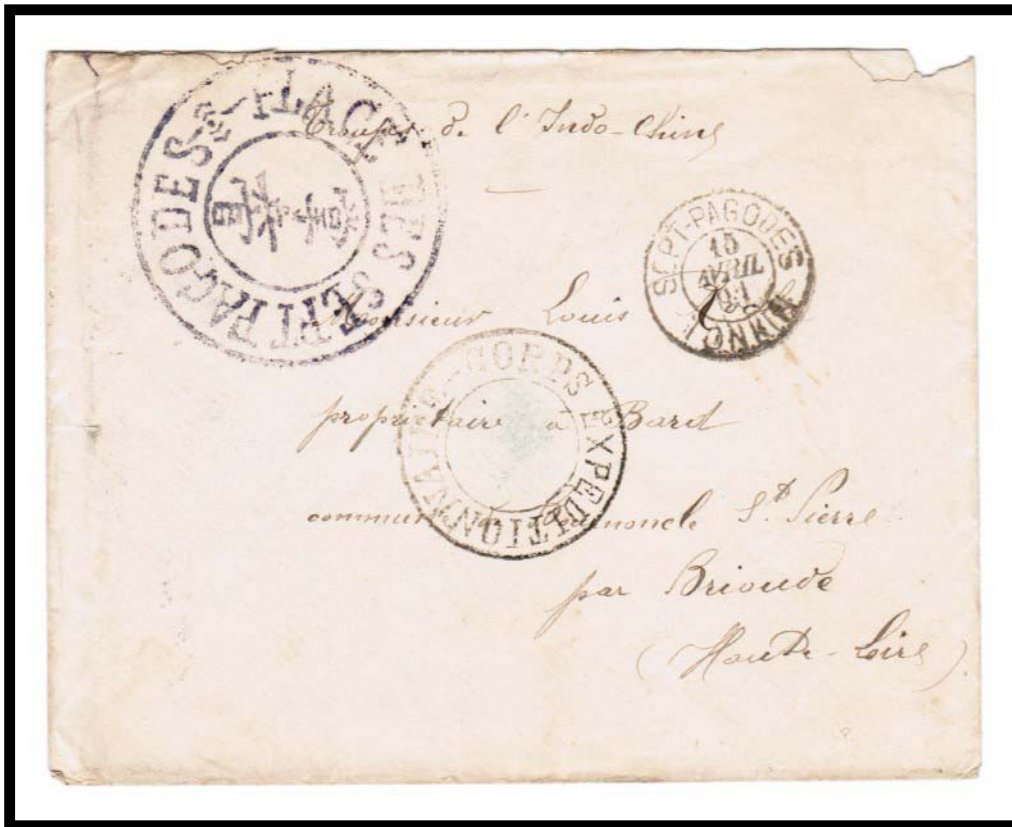 PLACE DES SEPT PAGODES
Troupes de l'Indo-Chine
SEPT-PAGODES
15
AVRIL
TONKIN
Monsieur Louis
CORPS EXPEDITIONNAIRE
propriétaire à Bard
commune St Pierre
par Brioude
(Haute-Loire)